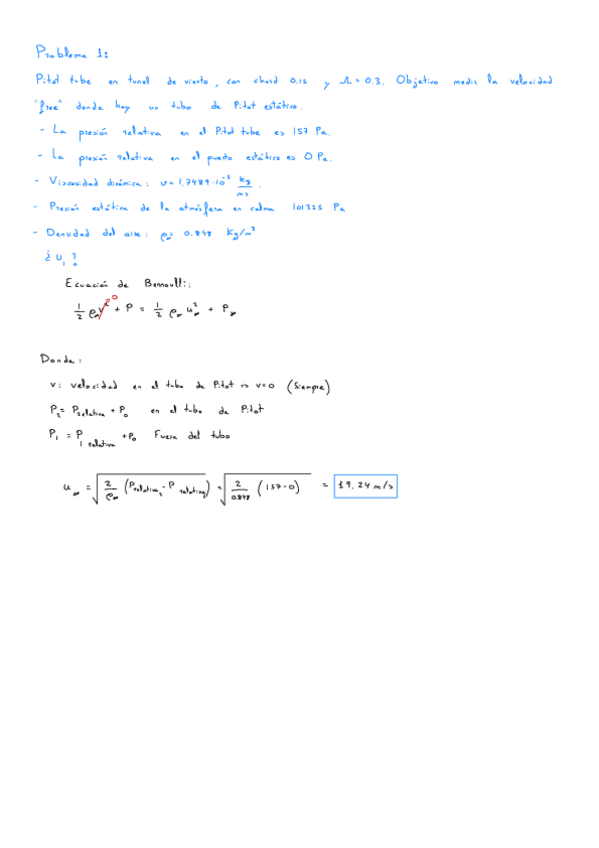 Problema 1:
Pitot tube en tunel de viento, con chord 0.15 y Λ = 0.3. Objetivo medir la velocidad
"free" donde hay un tubo de Pitot estático.
- La presión relativa en el Pitot tube es 157 Pa.
- La presión relativa en el puerto estático es 0 Pa.
- Viscosidad dinámica: υ = 1,7489·10⁻⁵ kg/ms.
- Presión estática de la atmósfera en calma 101325 Pa
- Densidad del aire: ρ∞ = 0.848 kg/m³
¿U₁?
Ecuación de Bernoulli:
1/2 ρ∞ v² ⁰ + P = 1/2 ρ∞ u∞² + P∞
Donde:
v: velocidad en el tubo de Pitot ⇒ v=0 (Siempre)
P₂ = P₂ relativa + P₀ en el tubo de Pitot
P₁ = P₁ relativa + P₀ Fuera del tubo
u∞ = √(2/ρ∞ (Prelativa₂ - P relativa₁)) = √(2/0.848 (157-0)) = 19,24 m/s